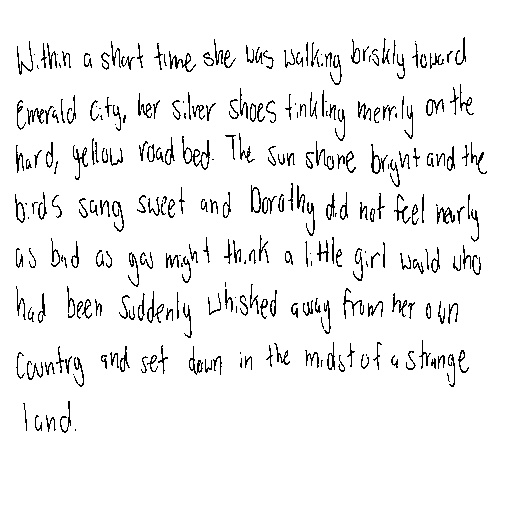 Within a short time she was walking briskly toward
Emerald City, her silver shoes tinkling merrily on the
hard, yellow road bed. The sun shone bright and the
birds sang sweet and Dorothy did not feel nearly
as bad as you might think a little girl would who
had been suddenly whisked away from her own
country and set down in the midst of a strange
land.